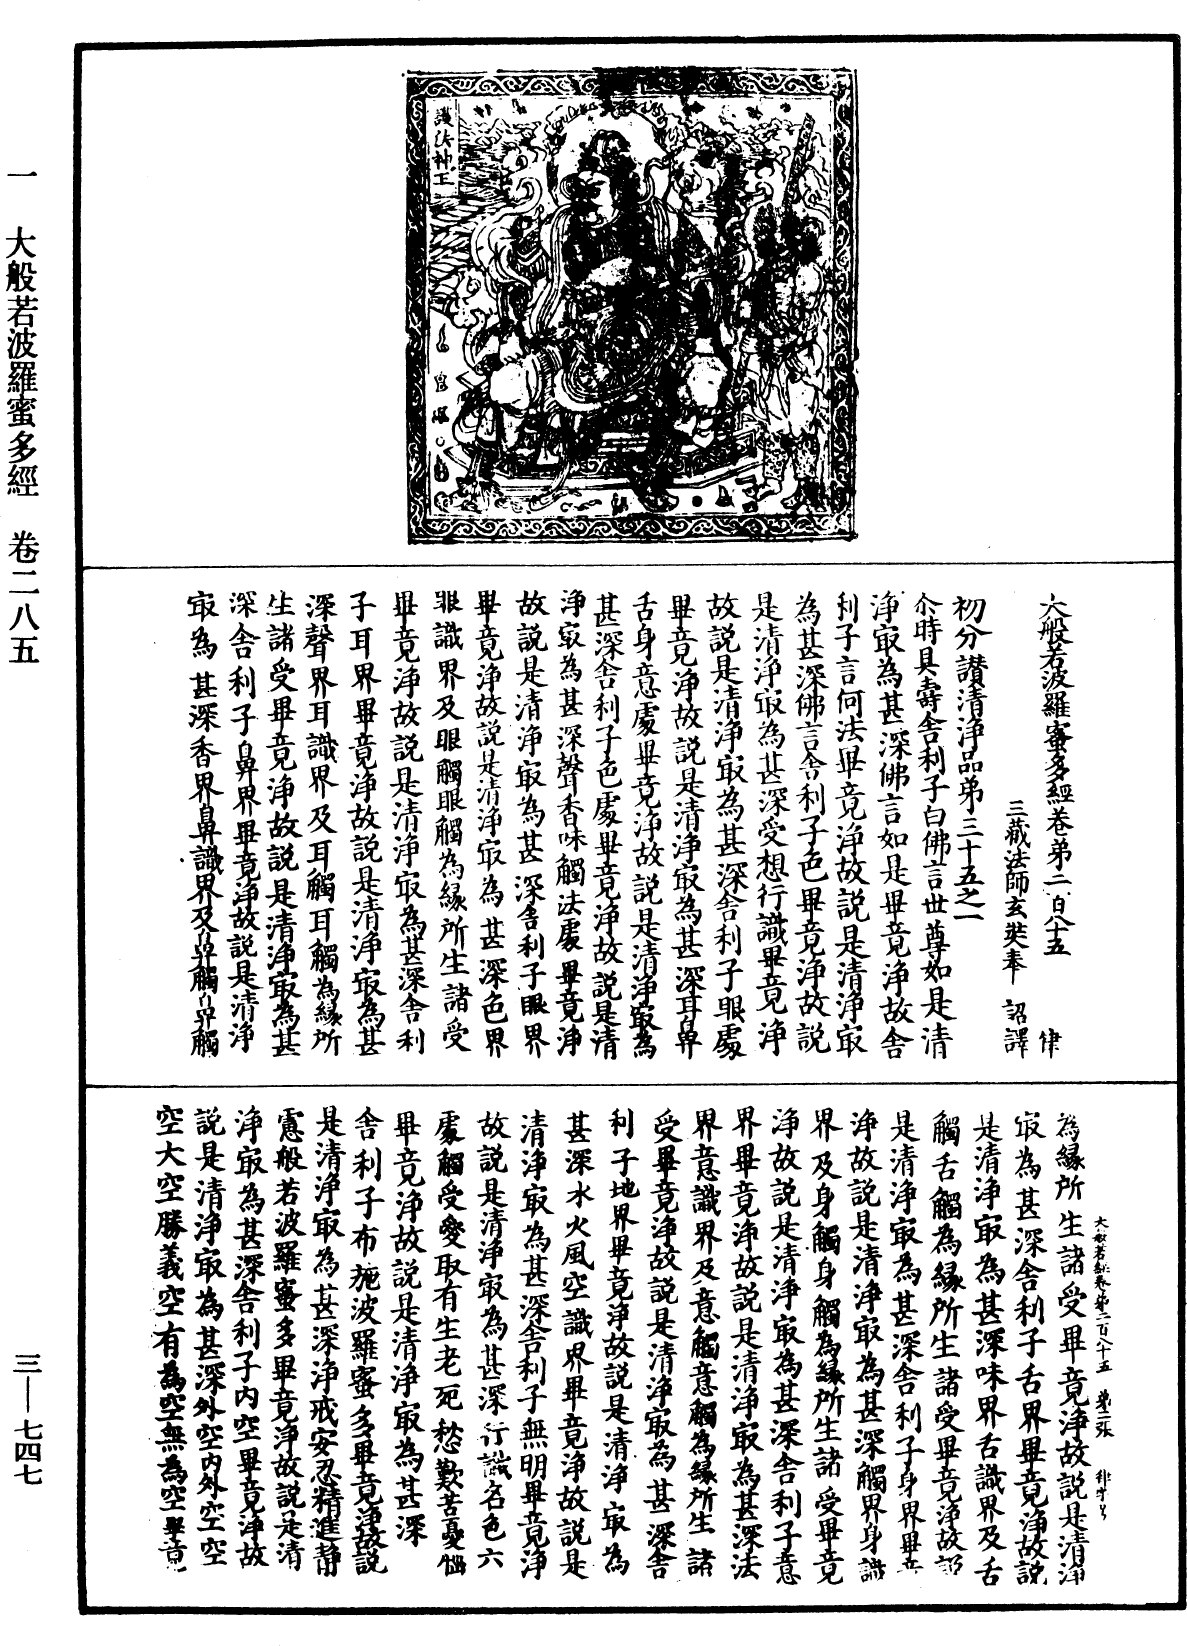 一 大般若波羅蜜多經 卷二八五
三—七四七
護法神王
大般若波羅蜜多經卷第二百八十五 律
三藏法師玄奘奉 詔譯
初分讃清淨品第三十五之一
尒時具壽舍利子白佛言世尊如是清
淨㝡為甚深佛言如是畢竟淨故舍
利子言何法畢竟淨故說是清淨㝡
為甚深佛言舍利子色畢竟淨故說
是清淨㝡為甚深受想行識畢竟淨
故說是清淨㝡為甚深舍利子眼處
畢竟淨故說是清淨㝡為甚深耳鼻
舌身意處畢竟淨故說是清淨㝡為
甚深舍利子色處畢竟淨故說是清
淨㝡為甚深聲香味觸法處畢竟淨
故說是清淨㝡為甚深舍利子眼界
畢竟淨故說是清淨㝡為甚深色界
眼識界及眼觸眼觸為緣所生諸受
畢竟淨故說是清淨㝡為甚深舍利
子耳界畢竟淨故說是清淨㝡為甚
深聲界耳識界及耳觸耳觸為緣所
生諸受畢竟淨故說是清淨㝡為甚
深舍利子鼻界畢竟淨故說是清淨
㝡為甚深香界鼻識界及鼻觸鼻觸
為緣所生諸受畢竟淨故說是清淨
大般若經卷第二百八十五 第二張 律字号
㝡為甚深舍利子舌界畢竟淨故說
是清淨㝡為甚深味界舌識界及舌
觸舌觸為緣所生諸受畢竟淨故說
是清淨㝡為甚深舍利子身界畢竟
淨故說是清淨㝡為甚深觸界身識
界及身觸身觸為緣所生諸受畢竟
淨故說是清淨㝡為甚深舍利子意
界畢竟淨故說是清淨㝡為甚深法
界意識界及意觸意觸為緣所生諸
受畢竟淨故說是清淨㝡為甚深舍
利子地界畢竟淨故說是清淨㝡為
甚深水火風空識界畢竟淨故說是
清淨㝡為甚深舍利子無明畢竟淨
故說是清淨㝡為甚深行識名色六
處觸受愛取有生老死愁歎苦憂惱
畢竟淨故說是清淨㝡為甚深
舍利子布施波羅蜜多畢竟淨故說
是清淨㝡為甚深淨戒安忍精進靜
慮般若波羅蜜多畢竟淨故說是清
淨㝡為甚深舍利子內空畢竟淨故
說是清淨㝡為甚深外空內外空空
空大空勝義空有為空無為空畢竟